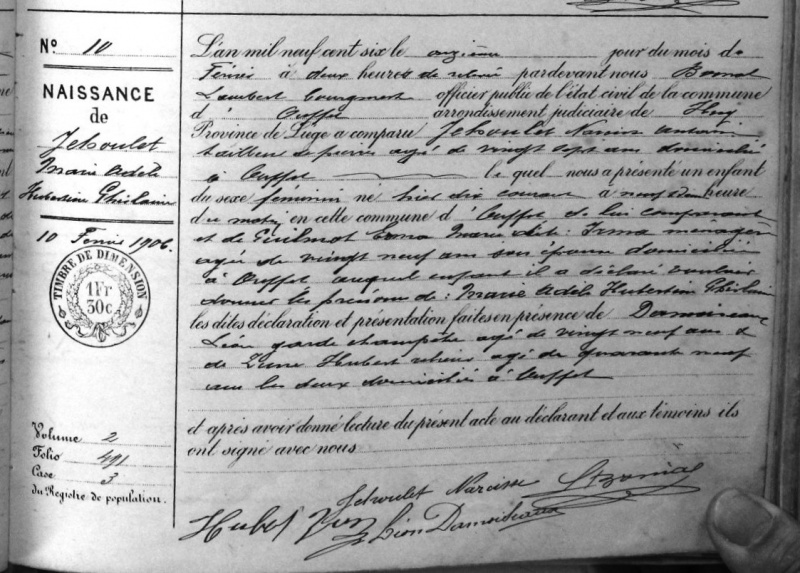 N° 10
NAISSANCE
de
Jehoulet
Marie Adèle
Hubertine Ghislaine
10 Février 1906.
TIMBRE DE DIMENSION
1 Fr
30c
Volume 2
Folio 491
Case 3
du Registre de population.
L'an mil neuf cent six le onzième jour du mois de
Février à deux heures de relevée pardevant nous
Lambert bourgmestre officier public de l'état civil de la commune
d' Ouffet arrondissement judiciaire de Huy
Province de Liége a comparu Jehoulet Narcisse
tailleur de pierres agé de vingt sept ans domicilié
à Ouffet le quel nous a présenté un enfant
du sexe féminin né hier dix courant à neuf heure
du matin en cette commune d' Ouffet de lui comparant
et de Guilmot Marie dit: Irma menagère
agée de vingt neuf ans son épouse domiciliée
à Ouffet auquel enfant il a déclaré vouloir
donner les prénoms de: Marie Adèle Hubertine Ghislaine
les dites déclaration et présentation faites en présence de Damoiseaux
Léon garde champêtre agé de vingt neuf ans &
de Hubert agé de quarante neuf
ans les deux domiciliés à Ouffet
et après avoir donné lecture du présent acte au déclarant et aux témoins ils
ont signé avec nous
Jehoulet Narcisse
Hubert Léon Damoiseaux